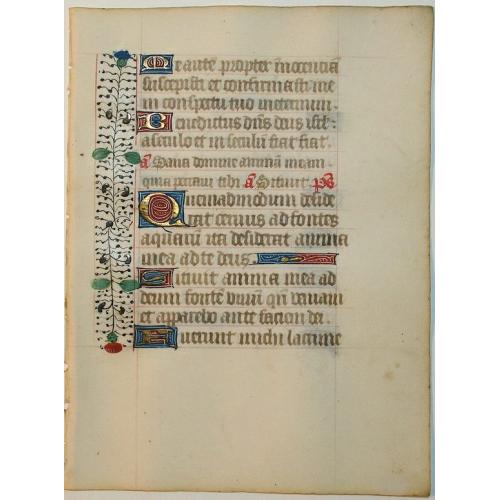 Me autē propter inocenciā
suscepisti et confirmasti me
in conspectu tuo ineternum.
Benedictus dn̄s deus isrl:
a seculo et in seculū fiat fiat.
a Sana domine animā meam
quia peccaui tibi a Sitiuit ps
Quemadmodum deside
rat ceruus ad fontes
aquarū ita desiderat anima
mea ad te deus.
Sitiuit anima mea ad
deum fontē viuū qn̄ veniam
et apparebo ante faciem dei.
Fuerunt michi lacrime